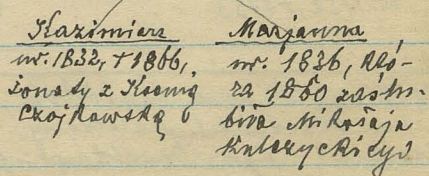 Kazimierz
ur. 1832, † 1866,
żonaty z Ksenią
Czajkowską
Marjanna
ur. 1836, któ-
ra 1860 zaślu-
biła Mikołaja
Kulczyckiego